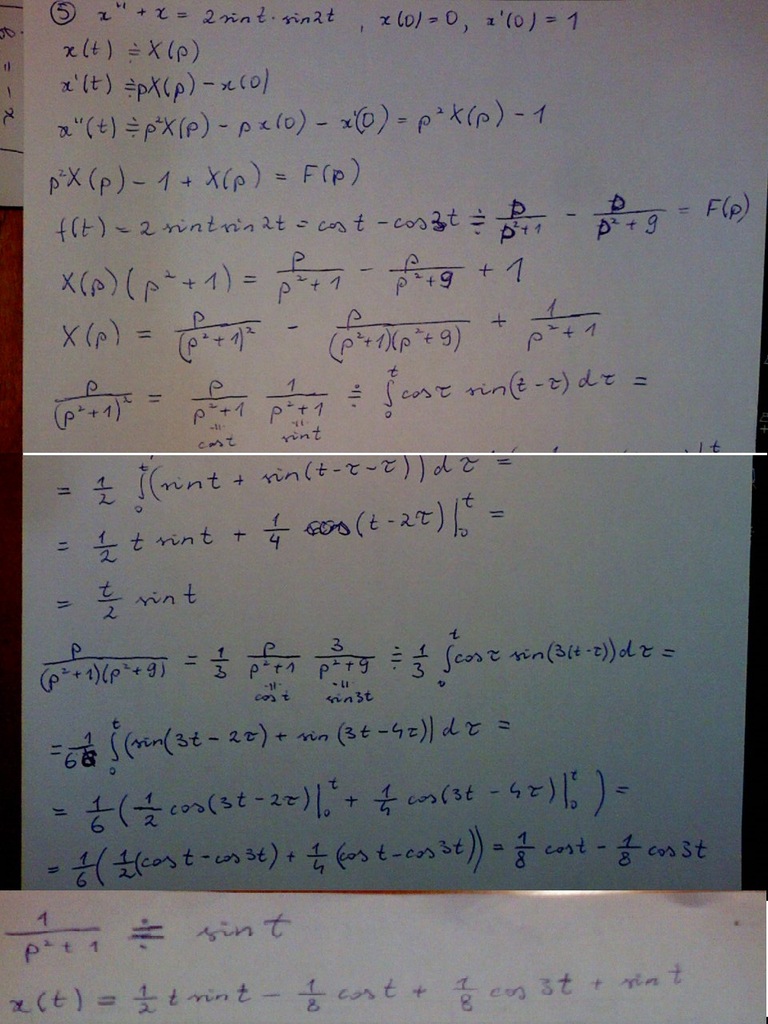 ⑤ x'' + x = 2 sin t · sin 2t , x(0) = 0, x'(0) = 1
x(t) ≓ X(p)
x'(t) ≓ pX(p) − x(0)
x''(t) ≓ p²X(p) − p x(0) − x'(0) = p²X(p) − 1
p²X(p) − 1 + X(p) = F(p)
f(t) = 2 sin t sin 2t = cos t − cos 3t ≓ p/(p²+1) − p/(p²+9) = F(p)
X(p)(p²+1) = p/(p²+1) − p/(p²+9) + 1
X(p) = p/(p²+1)² − p/((p²+1)(p²+9)) + 1/(p²+1)
p/(p²+1)² = p/(p²+1) 1/(p²+1) ≓ ∫₀ᵗ cos τ sin(t−τ) dτ =
cos t sin t
= 1/2 ∫₀ᵗ (sin t + sin(t−τ−τ)) dτ =
= 1/2 t sin t + 1/4 cos(t−2τ)|₀ᵗ =
= t/2 sin t
p/((p²+1)(p²+9)) = 1/3 p/(p²+1) 3/(p²+9) ≓ 1/3 ∫₀ᵗ cos τ sin(3(t−τ)) dτ =
cos t sin 3t
= 1/6 ∫₀ᵗ (sin(3t−2τ) + sin(3t−4τ)) dτ =
= 1/6 ( 1/2 cos(3t−2τ)|₀ᵗ + 1/4 cos(3t−4τ)|₀ᵗ ) =
= 1/6 ( 1/2 (cos t − cos 3t) + 1/4 (cos t − cos 3t)) = 1/8 cos t − 1/8 cos 3t
1/(p²+1) ≓ sin t
x(t) = 1/2 t sin t − 1/8 cos t + 1/8 cos 3t + sin t